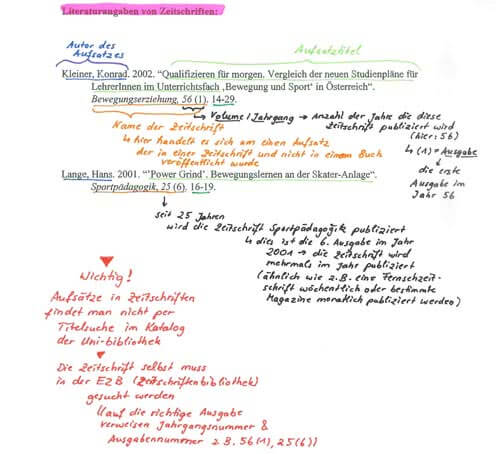 Literaturangaben von Zeitschriften:
Autor des
Aufsatzes
Aufsatztitel
Kleiner, Konrad. 2002. "Qualifizieren für morgen. Vergleich der neuen Studienpläne für
LehrerInnen im Unterrichtsfach ‚Bewegung und Sport' in Österreich".
Bewegungserziehung, 56 (1). 14-29.
Volume / Jahrgang → Anzahl der Jahre die diese
Zeitschrift publiziert wird
(hier: 56)
↳ (1) = Ausgabe
↓
die erste
Ausgabe im
Jahr 56
Name der Zeitschrift
↳ hier handelt es sich um einen Aufsatz
der in einer Zeitschrift und nicht in einem Buch
veröffentlicht wurde
Lange, Hans. 2001. "'Power Grind'. Bewegungslernen an der Skater-Anlage".
Sportpädagogik, 25 (6). 16-19.
seit 25 Jahren
wird die Zeitschrift Sportpädagogik publiziert
↳ dies ist die 6. Ausgabe im Jahr
2001 → die Zeitschrift wird
mehrmals im Jahr publiziert
(ähnlich wie z.B. eine Fernsehzeit-
schrift wöchentlich oder bestimmte
Magazine monatlich publiziert werden)
Wichtig!
Aufsätze in Zeitschriften
findet man nicht per
Titelsuche im Katalog
der Uni-bibliothek
Die Zeitschrift selbst muss
in der EZB (Zeitschriftenbibliothek)
gesucht werden
(auf die richtige Ausgabe
verweisen Jahrgangsnummer &
Ausgabennummer z.B. 56(1), 25(6))